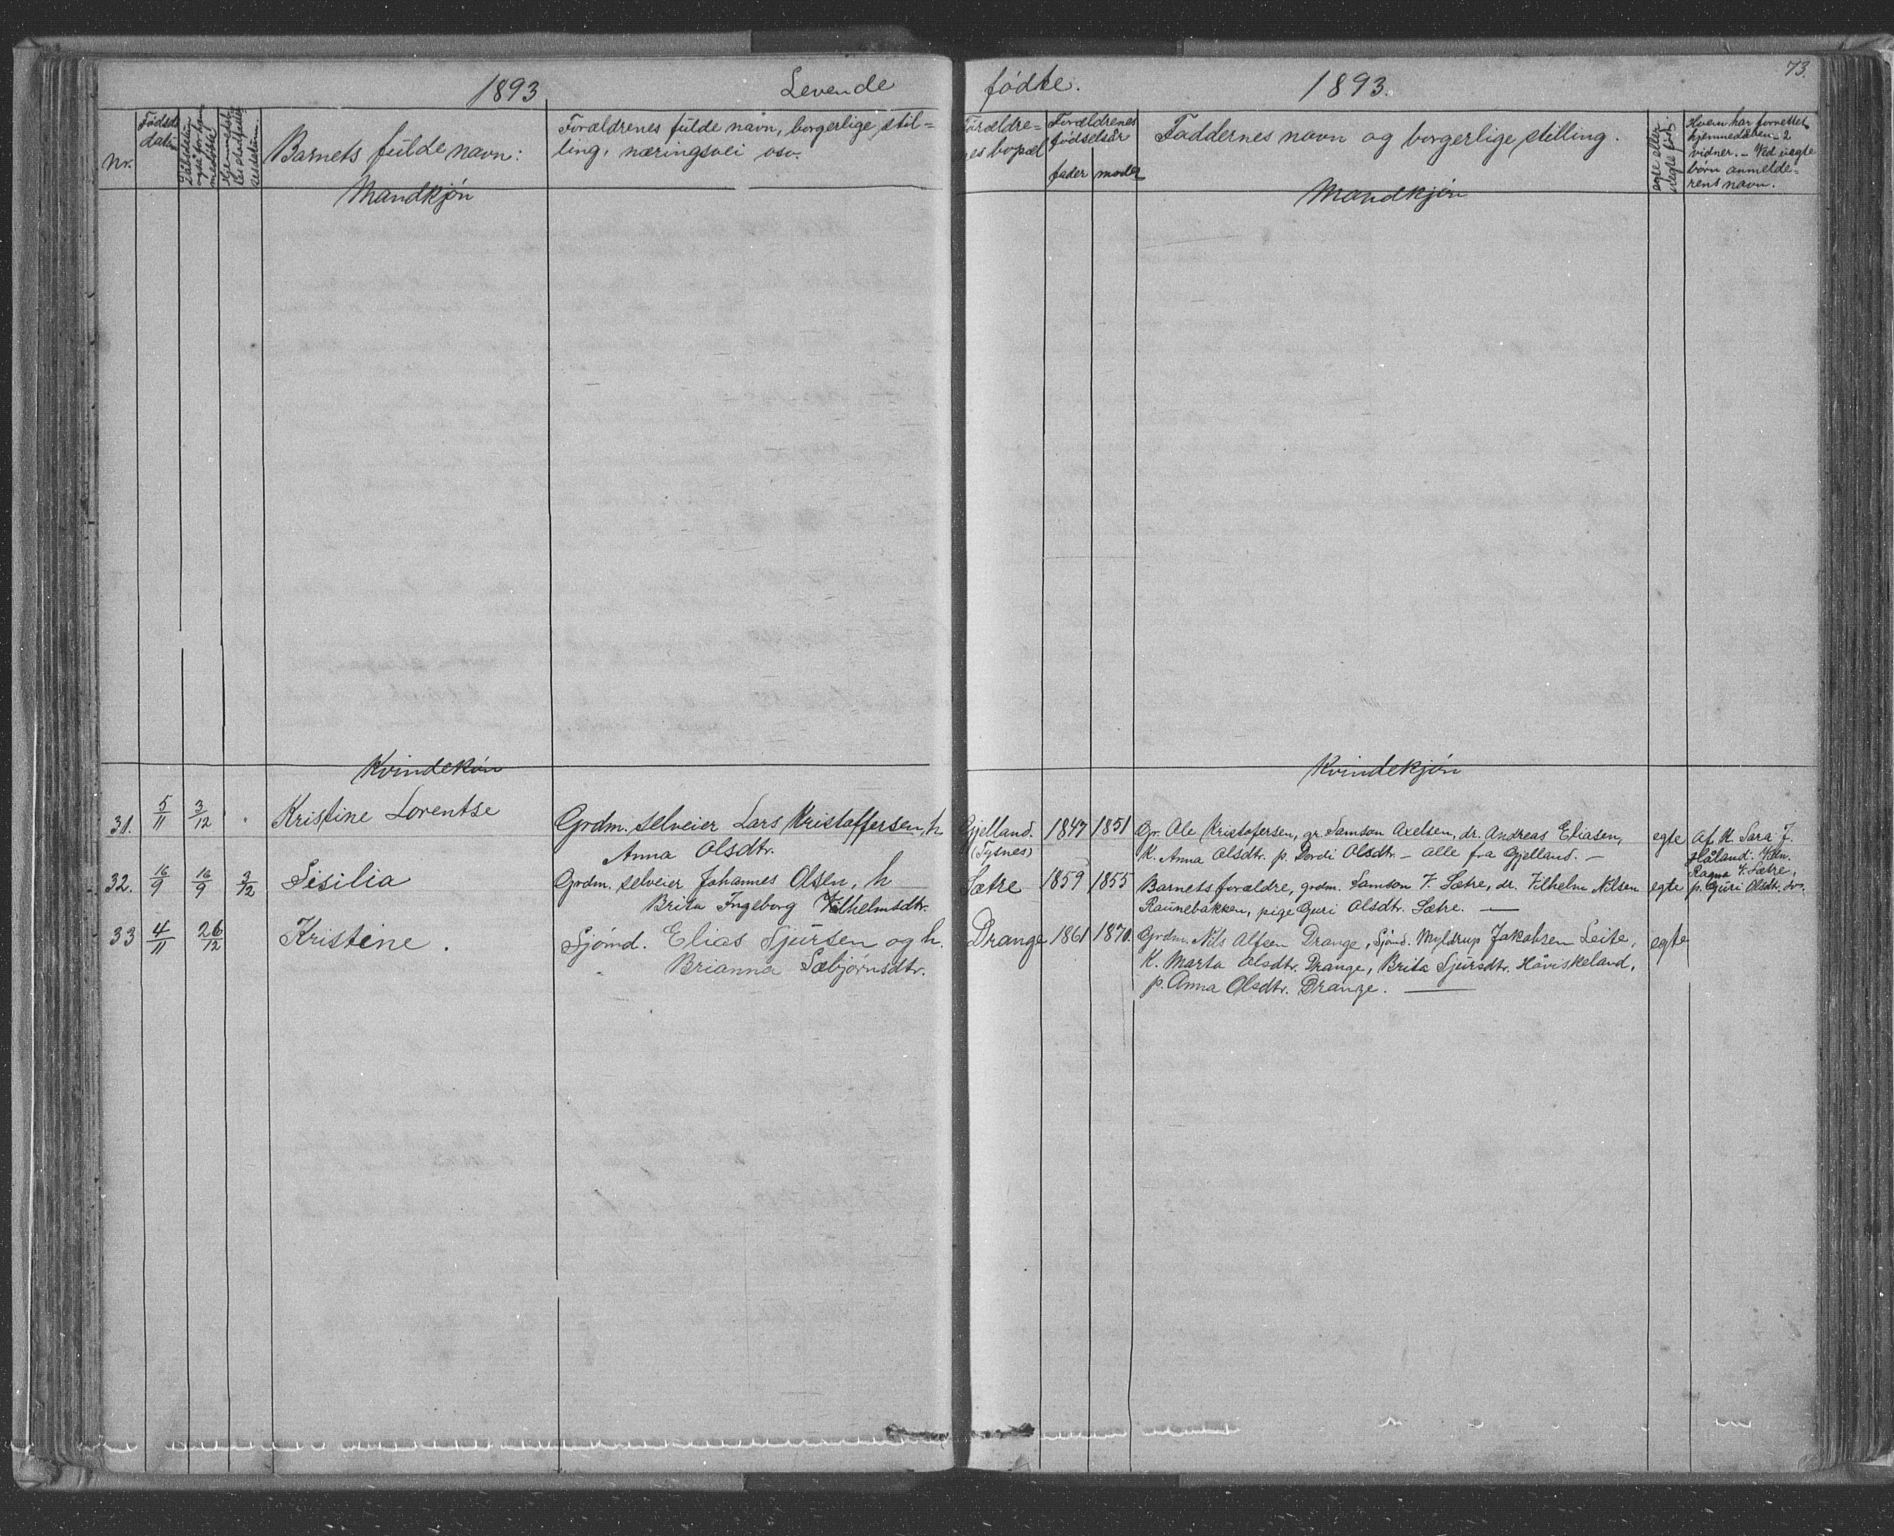 1893 Levende fødte. 1893. 73.
Nr.
Fødsels datum
Barnets fulde navn:
Forældrenes fulde navn, borgerlige stil-
ling, næringsvei osv.
Forældre-
nes bopæl
Forældrenes
fødselsår
fader moder
Faddernes navn og borgerlige stilling.
egte eller
uegte fød.
Hvem har forrettet
hjemmedåben - 2
vidner. - Ved uegte
børn anmelde-
rens navn.
Mandkjøn Mandkjøn
Kvindekøn Kvindekjøn
31. 5/11 3/12 Kristine Lorentse Grdm. selveier Lars Kristoffersen, h Gjelland. 1847 1851 Gr. Ole Kristofersen, gr. Samson Axelsen, dr. Andreas Eliasen, egte Af K. Sara J.
Anna Olsdtr. (Tysnes) K. Anna Olsdtr. p. Dordi Olsdtr. - alle fra Gjelland. - Håland.
32. 16/9 16/9 3/12 Sisilia Grdm. selveier Johannes Olsen, h Sætre 1859 1855 Barnets forældre, grdm. Samson V. Sætre, dr. Vilhelm Nilsen egte Ragna V. Sætre,
Brita Ingeborg Vilhelmsdtr. Raunebakken, pige Guri Olsdtr. Sætre. - p. Guri Olsdtr.
33 4/11 26/12 Kristine. Sjömd. Elias Sjursen og h. Drange 1861 1870. Grdm. Nils Alfsen Drange, Sjömd. Myldrup Jakobsen Leite, egte
Brianna Sæbjørnsdtr. K. Marta Olsdtr. Drange, Brita Sjursdtr. Håviskeland,
p. Anna Olsdtr. Drange. -